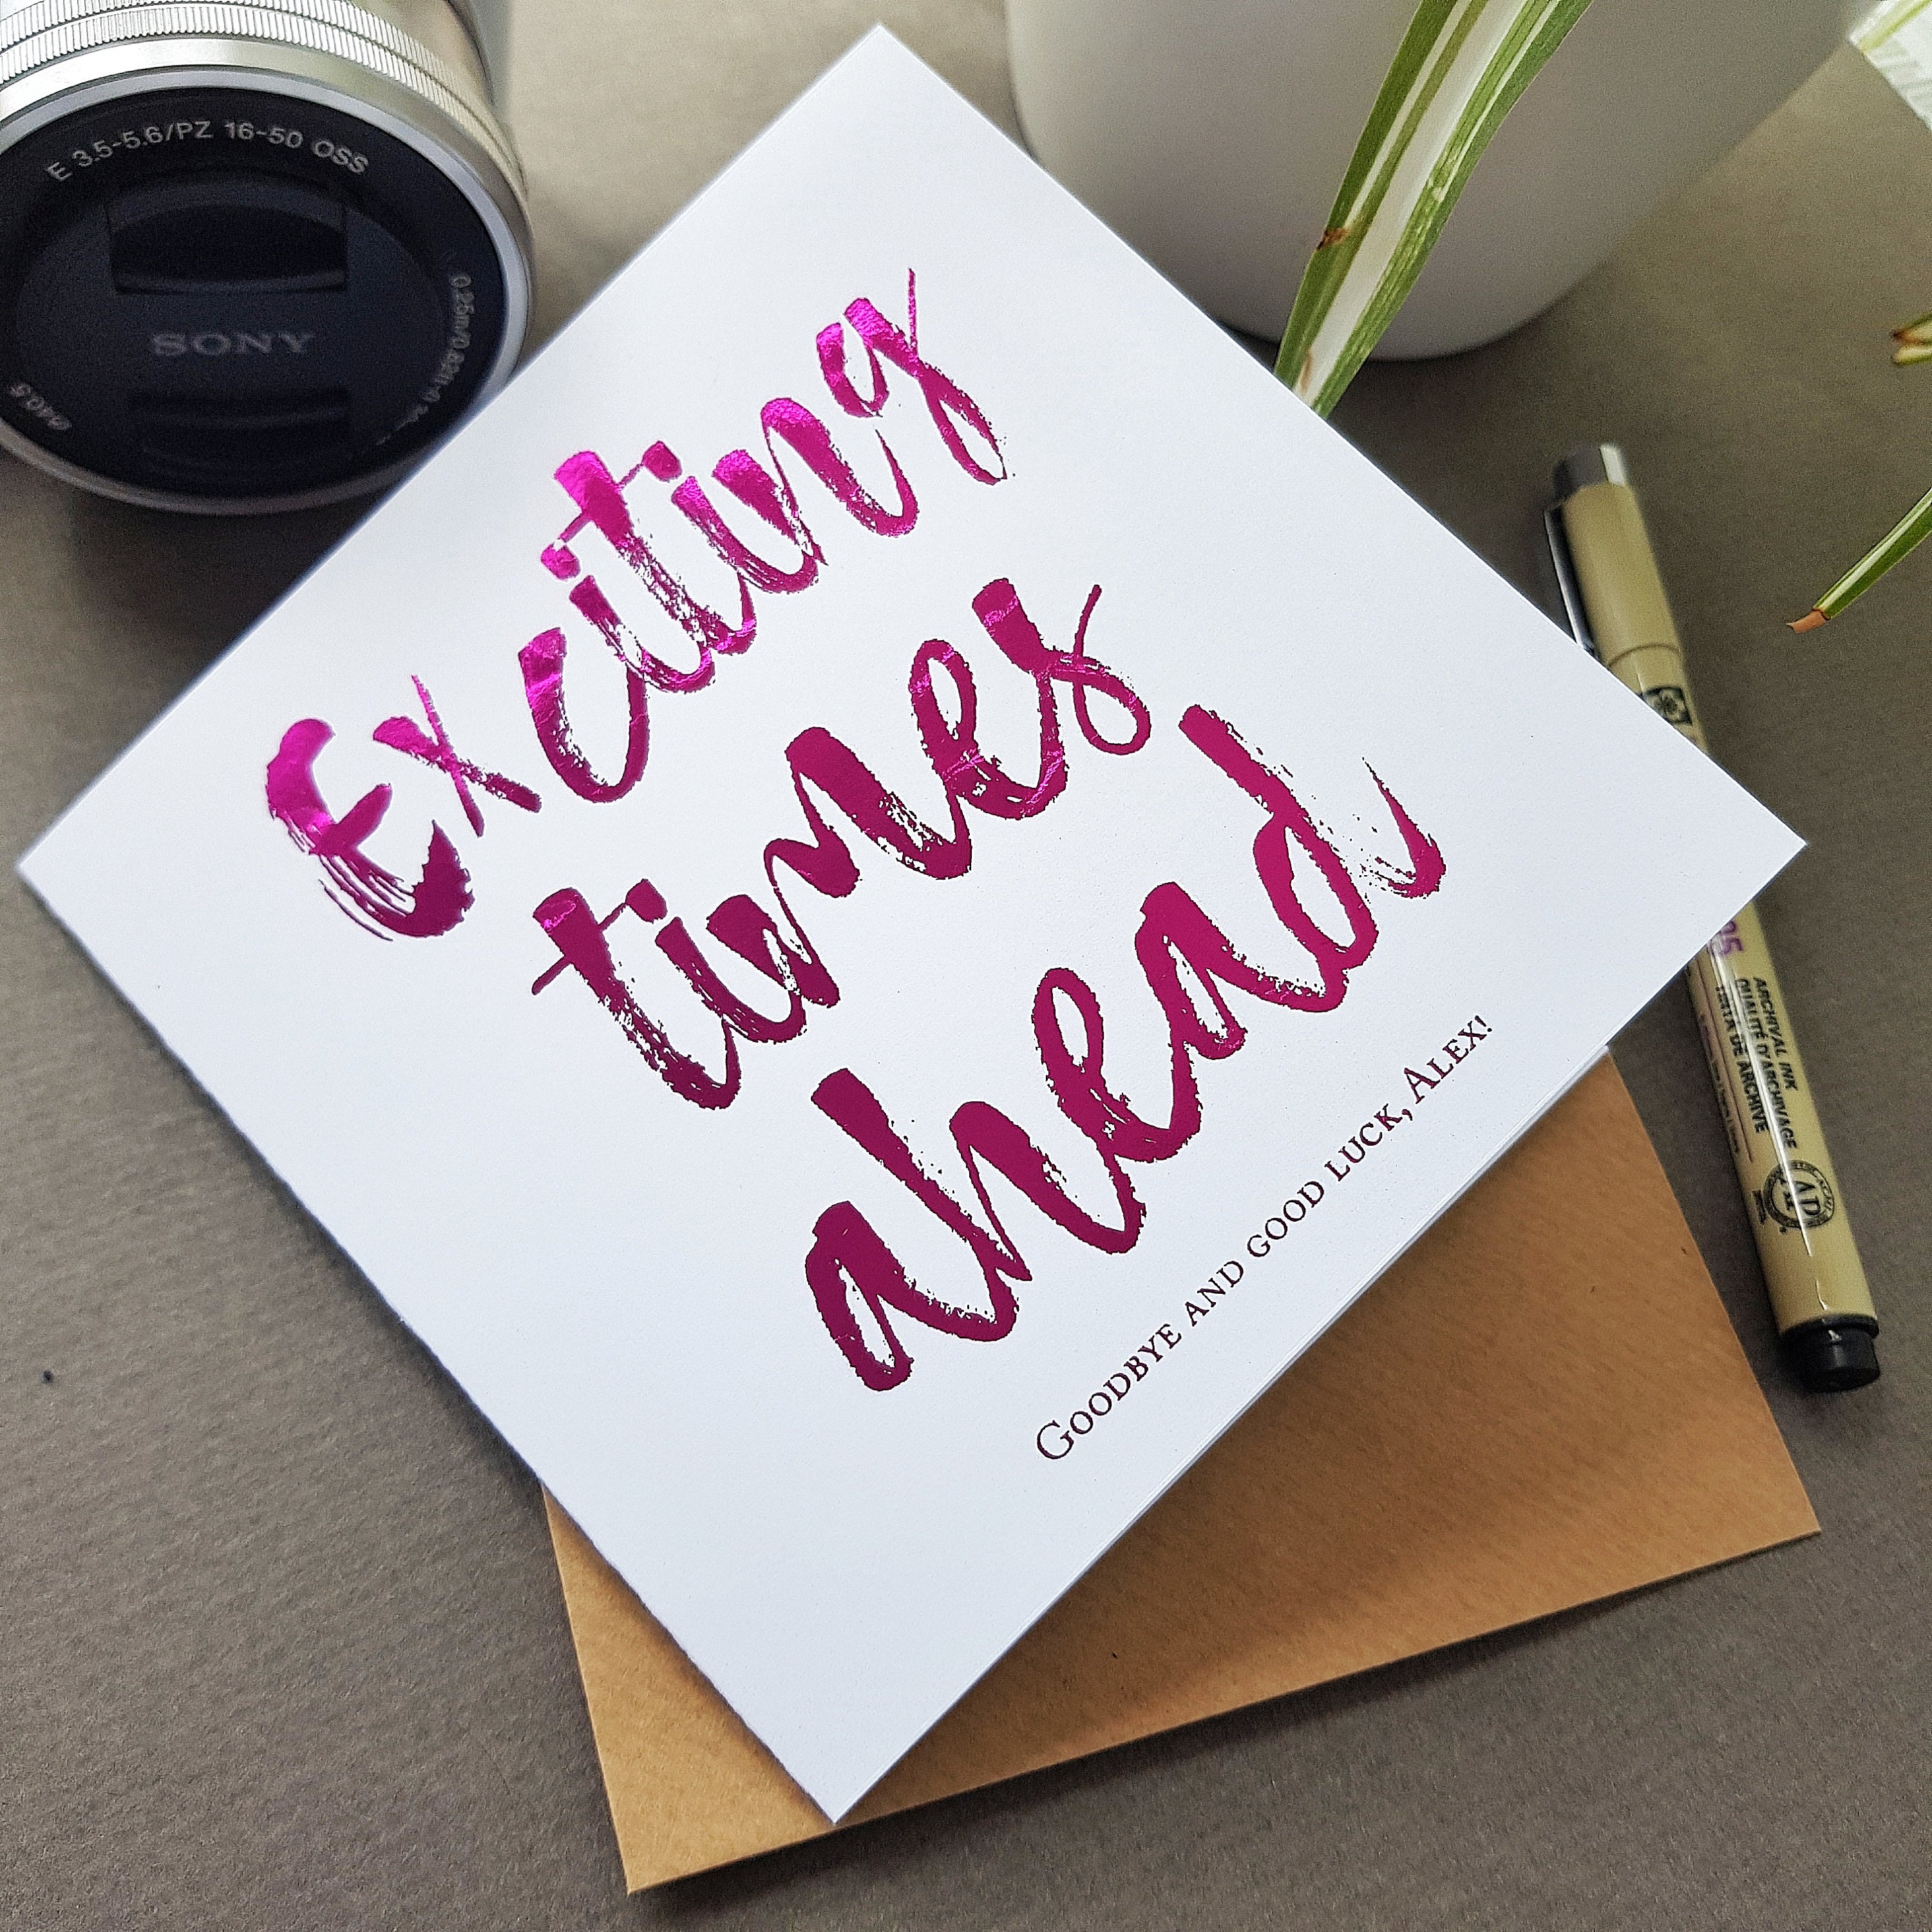 E 3.5-5.6/PZ 16-50 OSS
SONY
Exciting
times
ahead
GOODBYE AND GOOD LUCK, ALEX!
ARCHIVAL INK
QUALITÉ D'ARCHIVAGE
TINTA DE ARCHIVE
AD